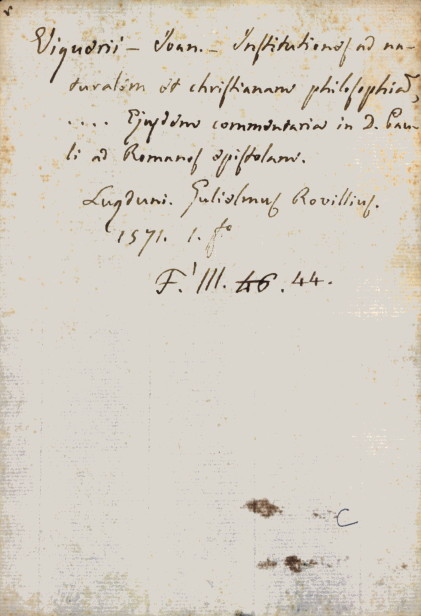 Viguerii – Joan. – Institutiones ad na-
turalem et christianam philosophiã,
.... Ejusdem commentaria in D. Pau-
li ad Romanos epistolam.
Lugduni. Gulielmus Rovillius.
1571. 1. fº
F. III. 46. 44.
C